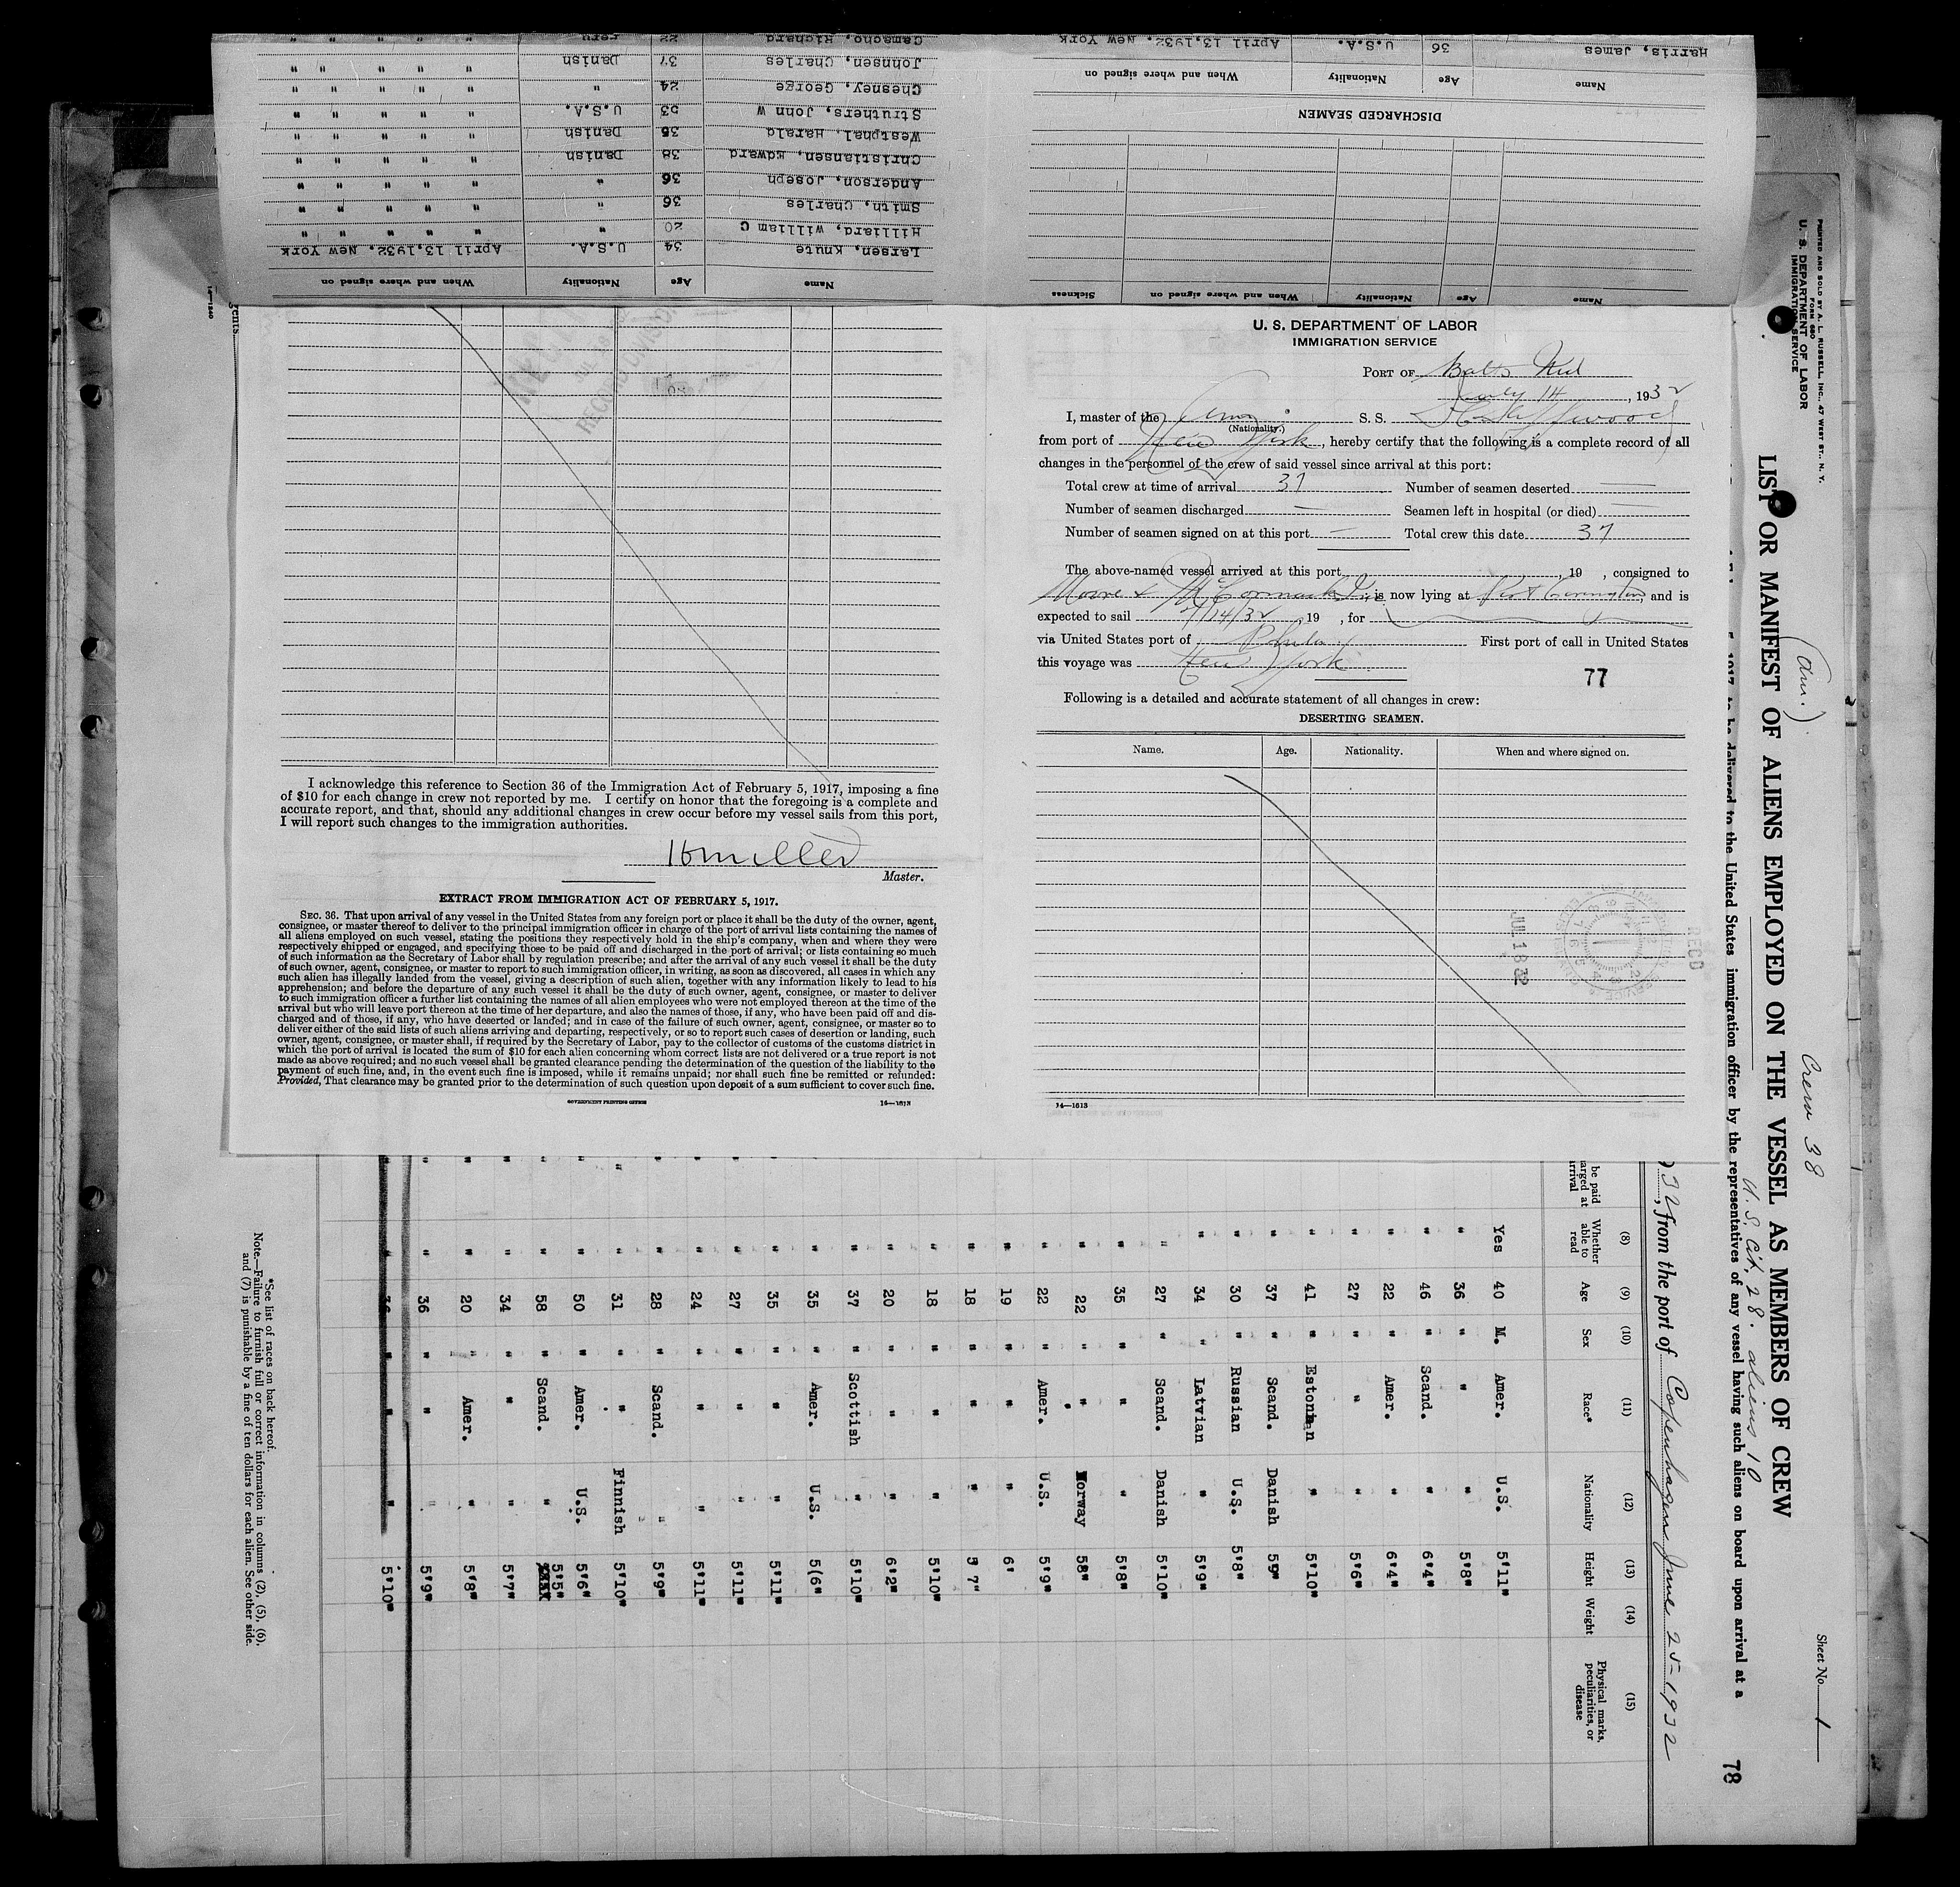 Camacho, Richard 22 Peru " " " " "
Johnsen, Charles 37 Danish " " " " "
Chesney, George 24 " " " " " "
Struthers, John W 53 U.S.A. " " " " "
Westphal, Harald 35 Danish " " " " "
Christiansen, Edward 38 Danish " " " " "
Anderson, Joseph 36 " " " " " "
Smith, Charles 36 " " " " " "
Hilliard, William C 20 " " " " " "
Larsen, Knute 34 U.S.A. April 13,1932. New York
Name Age Nationality When and where signed on
Harris, James 36 U.S.A. April 13,1932. New York
Name Age Nationality When and where signed on
DISCHARGED SEAMEN
Name Age Nationality When and where signed on Sickness
I acknowledge this reference to Section 36 of the Immigration Act of February 5, 1917, imposing a fine
of $10 for each change in crew not reported by me. I certify on honor that the foregoing is a complete and
accurate report, and that, should any additional changes in crew occur before my vessel sails from this port,
I will report such changes to the immigration authorities.
Master.
EXTRACT FROM IMMIGRATION ACT OF FEBRUARY 5, 1917.
SEC. 36. That upon arrival of any vessel in the United States from any foreign port or place it shall be the duty of the owner, agent,
consignee, or master thereof to deliver to the principal immigration officer in charge of the port of arrival lists containing the names of
all aliens employed on such vessel, stating the positions they respectively hold in the ship's company, when and where they were
respectively shipped or engaged, and specifying those to be paid off and discharged in the port of arrival; or lists containing so much
of such information as the Secretary of Labor shall by regulation prescribe; and after the arrival of any such vessel it shall be the duty
of such owner, agent, consignee, or master to report to such immigration officer, in writing, as soon as discovered, all cases in which any
such alien has illegally landed from the vessel, giving a description of such alien, together with any information likely to lead to his
apprehension; and before the departure of any such vessel it shall be the duty of such owner, agent, consignee, or master to deliver
to such immigration officer a further list containing the names of all alien employees who were not employed thereon at the time of the
arrival but who will leave port thereon at the time of her departure, and also the names of those, if any, who have been paid off and dis-
charged and of those, if any, who have deserted or landed; and in case of the failure of such owner, agent, consignee, or master so to
deliver either of the said lists of such aliens arriving and departing, respectively, or so to report such cases of desertion or landing, such
owner, agent, consignee, or master shall, if required by the Secretary of Labor, pay to the collector of customs of the customs district in
which the port of arrival is located the sum of $10 for each alien concerning whom correct lists are not delivered or a true report is not
made as above required; and no such vessel shall be granted clearance pending the determination of the question of the liability to the
payment of such fine, and, in the event such fine is imposed, while it remains unpaid; nor shall such fine be remitted or refunded:
Provided, That clearance may be granted prior to the determination of such question upon deposit of a sum sufficient to cover such fine.
GOVERNMENT PRINTING OFFICE 14—1613
U. S. DEPARTMENT OF LABOR
IMMIGRATION SERVICE
PORT OF Balto Md
July 14, 1932
I, master of the Amn S. S.
(Nationality.)
from port of New York, hereby certify that the following is a complete record of all
changes in the personnel of the crew of said vessel since arrival at this port:
Total crew at time of arrival 37 Number of seamen deserted —
Number of seamen discharged — Seamen left in hospital (or died) —
Number of seamen signed on at this port — Total crew this date 37
The above-named vessel arrived at this port , 19 , consigned to
Moore & McCormack is now lying at Port Covington, and is
expected to sail 7/14/32, 19 , for
via United States port of Phila. First port of call in United States
this voyage was New York
77
Following is a detailed and accurate statement of all changes in crew:
DESERTING SEAMEN.
Name. Age. Nationality. When and where signed on.
JUL 18 32
RECD
14—1613
PRINTED AND SOLD BY A. L. RUSSELL, INC., 47 WEST ST., N. Y.
FORM 680
U. S. DEPARTMENT OF LABOR
IMMIGRATION SERVICE
Sheet No. 1
(Am.) Crew 38
U.S. Cit. 28. aliens 10
LIST OR MANIFEST OF ALIENS EMPLOYED ON THE VESSEL AS MEMBERS OF CREW
to be delivered to the United States immigration officer by the representatives of any vessel having such aliens on board upon arrival at a
78
32, from the port of Copenhagen June 25-1932
(8) (9) (10) (11) (12) (13) (14) (15)
be paid Whether able to read Age Sex Race* Nationality Height Weight Physical marks, peculiarities, or disease
Yes 40 M. Amer. U.S. 5'11"
" 36 " " " 5'8"
" 46 " Scand. " 6'4"
" 22 " Amer. " 6'4"
" 27 " " " 5'6"
" 41 " Estonian " 5'10"
" 37 " Scand. Danish 5'9"
" 30 " Russian U.S. 5'8"
" 34 " Latvian " 5'9"
" 27 " Scand. Danish 5'10"
" 35 " " " 5'8"
" 22 " " Norway 58"
" 22 " Amer. U.S. 5'9"
" 19 " " " 6'
" 18 " " " 5'7"
" 18 " " " 5'10"
" 20 " " " 6'2"
" 37 " Scottish " 5'10"
" 35 " Amer. U.S. 5(6"
" 35 " " " 5'11"
" 27 " " " 5'11"
" 24 " " " 5'11"
" 28 " Scand. " 5'9"
" 31 " " Finnish 5'10"
" 50 " Amer. U.S. 5'6"
" 58 " Scand. " 5'5"
" 34 " " " 5'7"
" 20 " Amer. " 5'8"
" 36 " " " 5'9"
" 36 " " " 5'10"
*See list of races on back hereof.
Note.—Failure to furnish full or correct information in columns (2), (5), (6),
and (7) is punishable by a fine of ten dollars for each alien. See other side.